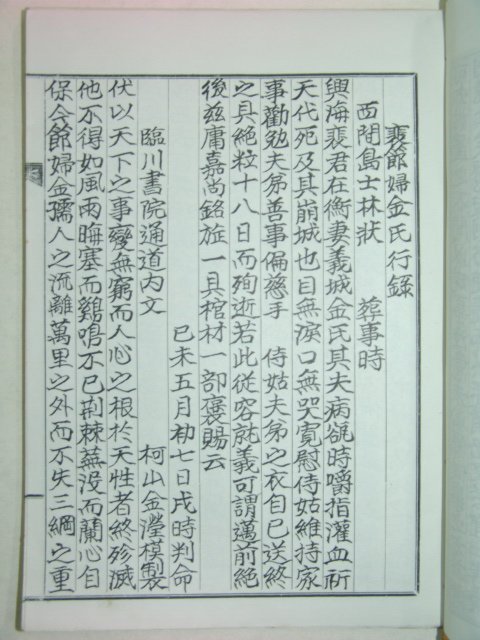 裵節婦金氏行錄
西間島士林狀　葬事時
興海裵君在衡妻義城金氏其夫病㞃時嚼指灌血祈
天代死及其崩城也目無淚口無哭寬慰侍姑維持家
事勸勉夫弟善事偏慈手　侍姑夫弟之衣自已送終
之具絶粒十八日而殉逝若此從容就義可謂邁前絶
後玆庸嘉尚銘旌一具棺材一部褒賜云
己未五月初七日戌時判命
臨川書院通道內文　柯山金瀅模製
伏以天下之事變無窮而人心之根於天性者終殄滅
他不得如風雨晦塞而鷄鳴不已荊棘蕪沒而蘭心自
保今節婦金孺人之流離萬里之外而不失三綱之重